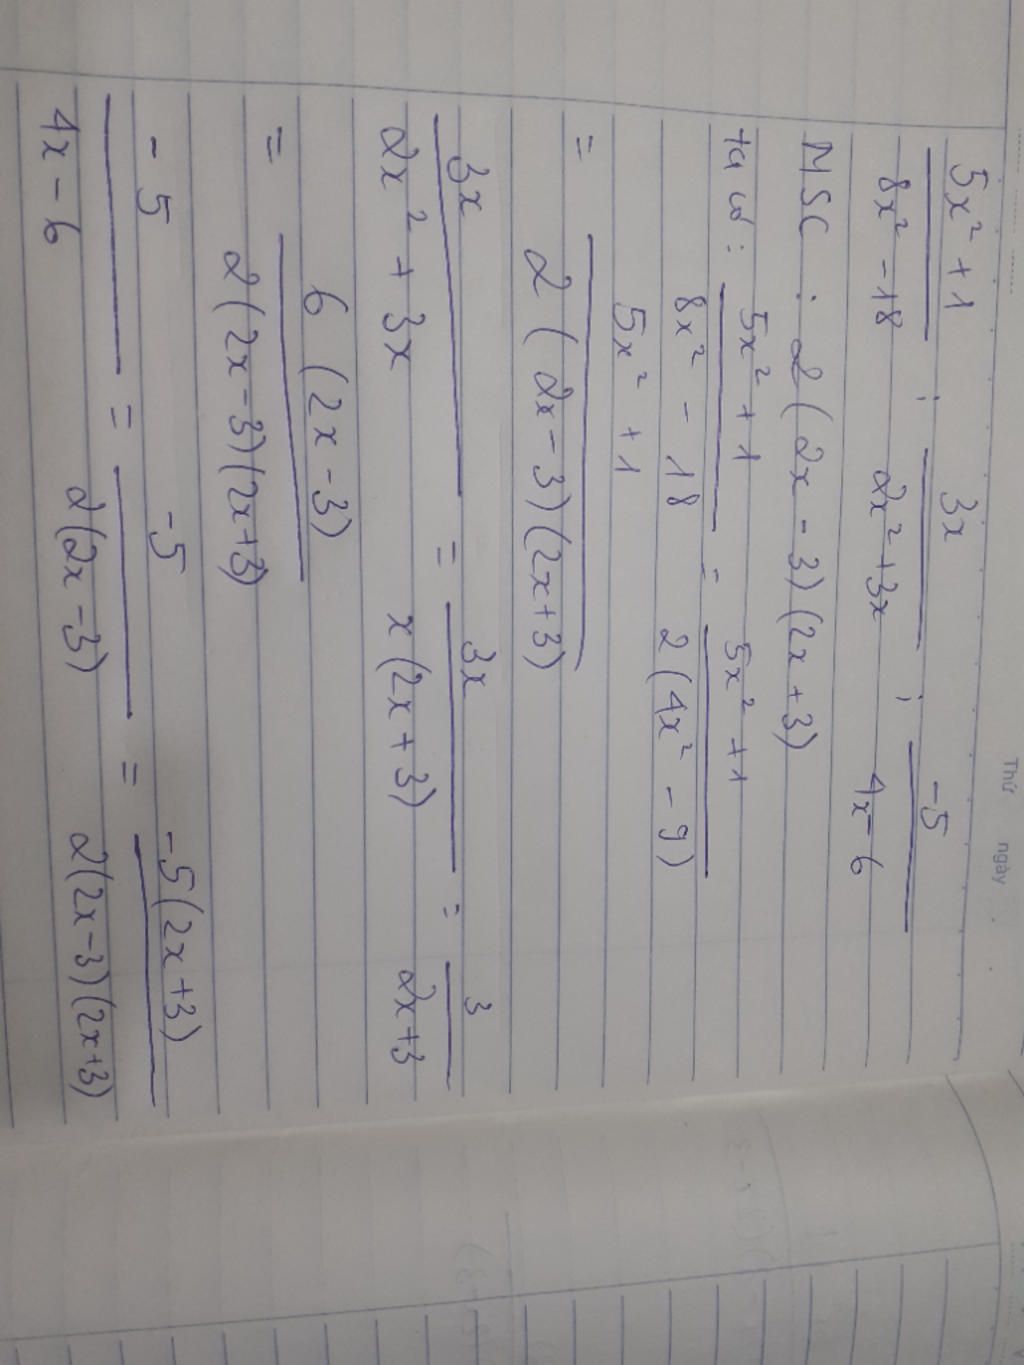 Thứ ngày
5x² + 1 / 8x² - 18 ; 3x / 2x² + 3x ; -5 / 4x - 6
MSC : 2(2x - 3)(2x + 3)
ta có : 5x² + 1 / 8x² - 18 = 5x² + 1 / 2(4x² - 9)
= 5x² + 1 / 2(2x - 3)(2x + 3)
3x / 2x² + 3x = 3x / x(2x + 3) = 3 / 2x + 3
= 6(2x - 3) / 2(2x - 3)(2x + 3)
-5 / 4x - 6 = -5 / 2(2x - 3) = -5(2x + 3) / 2(2x - 3)(2x + 3)